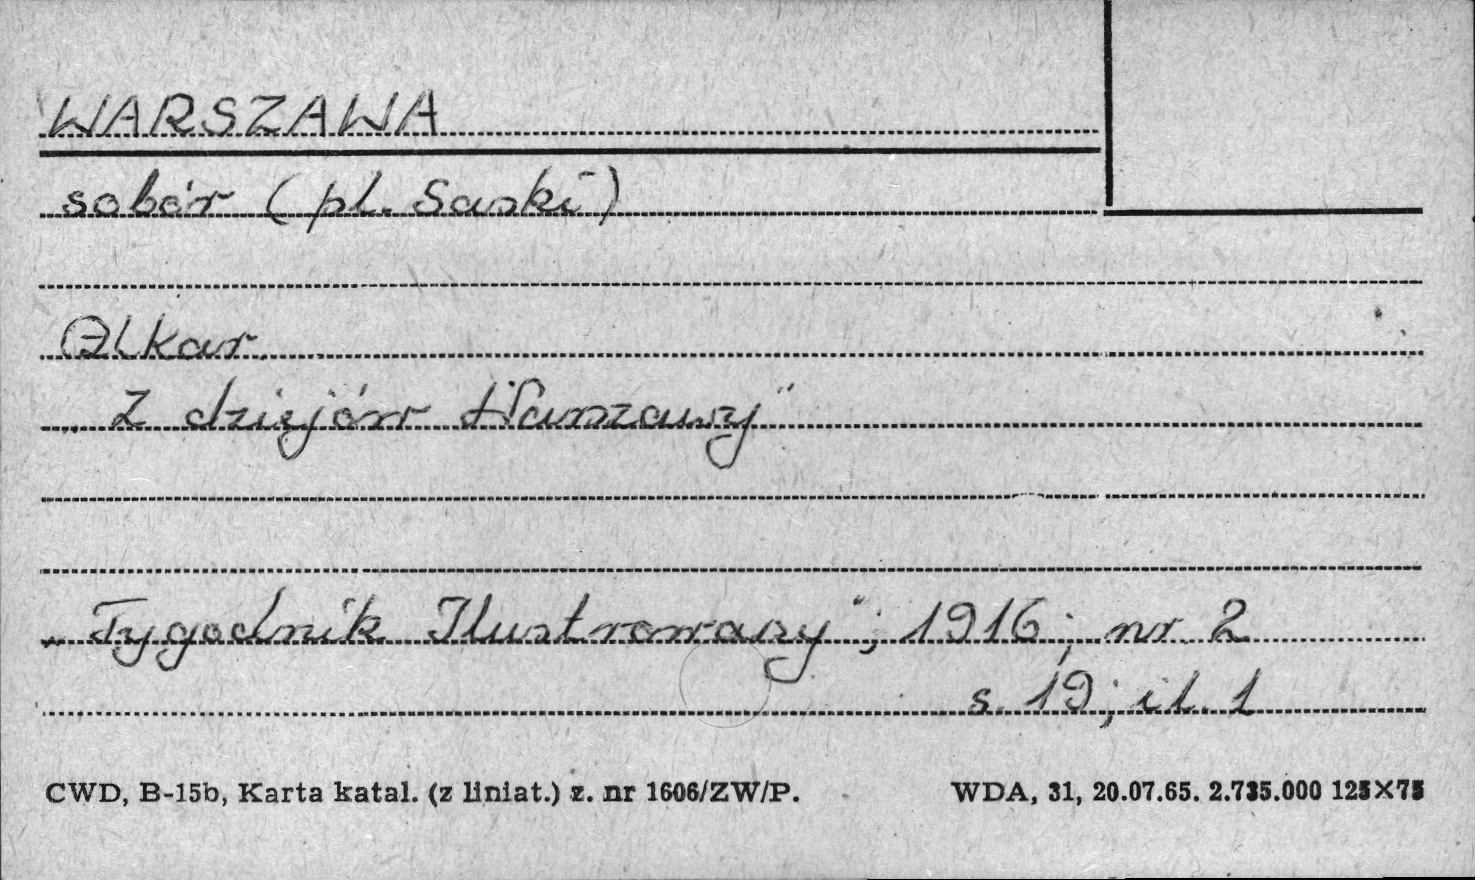 WARSZAWA
sobór (pl. Saski)
Alkar.
„Z dziejów Warszawy"
„Tygodnik Ilustrowany"; 1916; nr. 2
s. 19; il. 1
CWD, B-15b, Karta katal. (z liniat.) z. nr 1606/ZW/P. WDA, 31, 20.07.65. 2.735.000 125×75